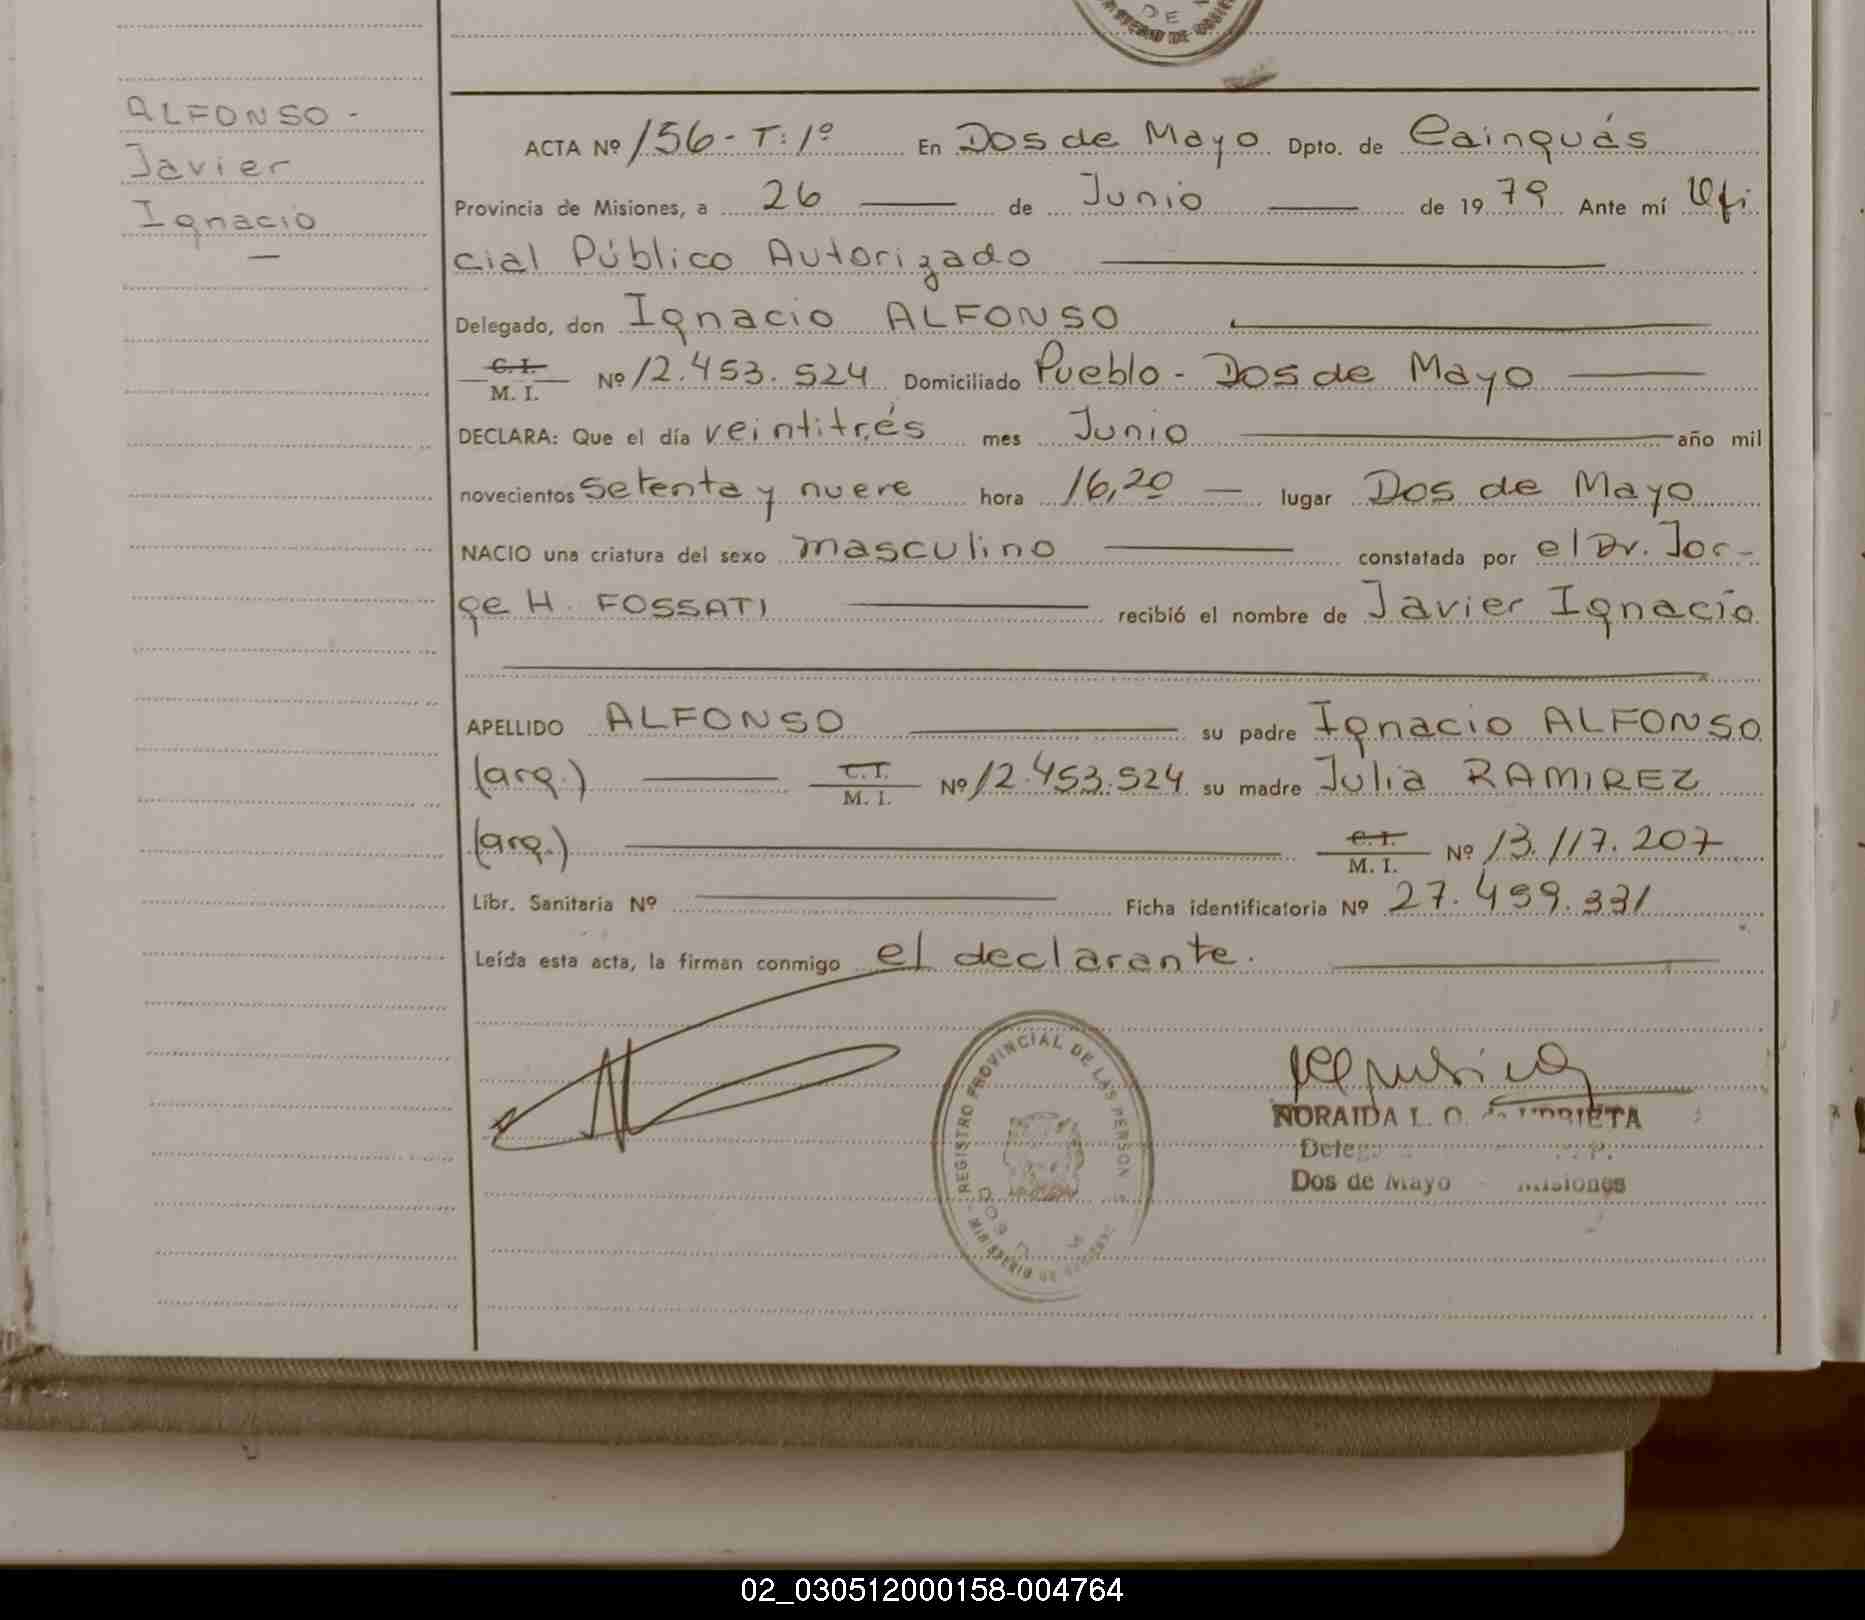 DE
MINISTERIO DE GOBIER
ALFONSO -
Javier
Ignacio
ACTA Nº 156 - T: 1º En Dos de Mayo Dpto. de Cainguás
Provincia de Misiones, a 26 de Junio de 1979 Ante mí Ofi
cial Público Autorizado
Delegado, don Ignacio ALFONSO
C. I.
M. I. Nº 12.453.524 Domiciliado Pueblo - Dos de Mayo
DECLARA: Que el día veintitrés mes Junio año mil
novecientos setenta y nueve hora 16,20 lugar Dos de Mayo
NACIO una criatura del sexo masculino constatada por el Dr. Jor-
ge H. FOSSATI recibió el nombre de Javier Ignacio
APELLIDO ALFONSO su padre Ignacio ALFONSO
(arg.) C. I.
M. I. Nº 12.453.524 su madre Julia RAMIREZ
(arg.) C. I.
M. I. Nº 13.117.207
Libr. Sanitaria Nº Ficha identificatoria Nº 27.499.331
Leída esta acta, la firman conmigo el declarante.
REGISTRO PROVINCIAL DE LAS PERSON
MINISTERIO DE
NORAIDA L. O. de URRIETA
Dos de Mayo - Misiones
02_030512000158-004764